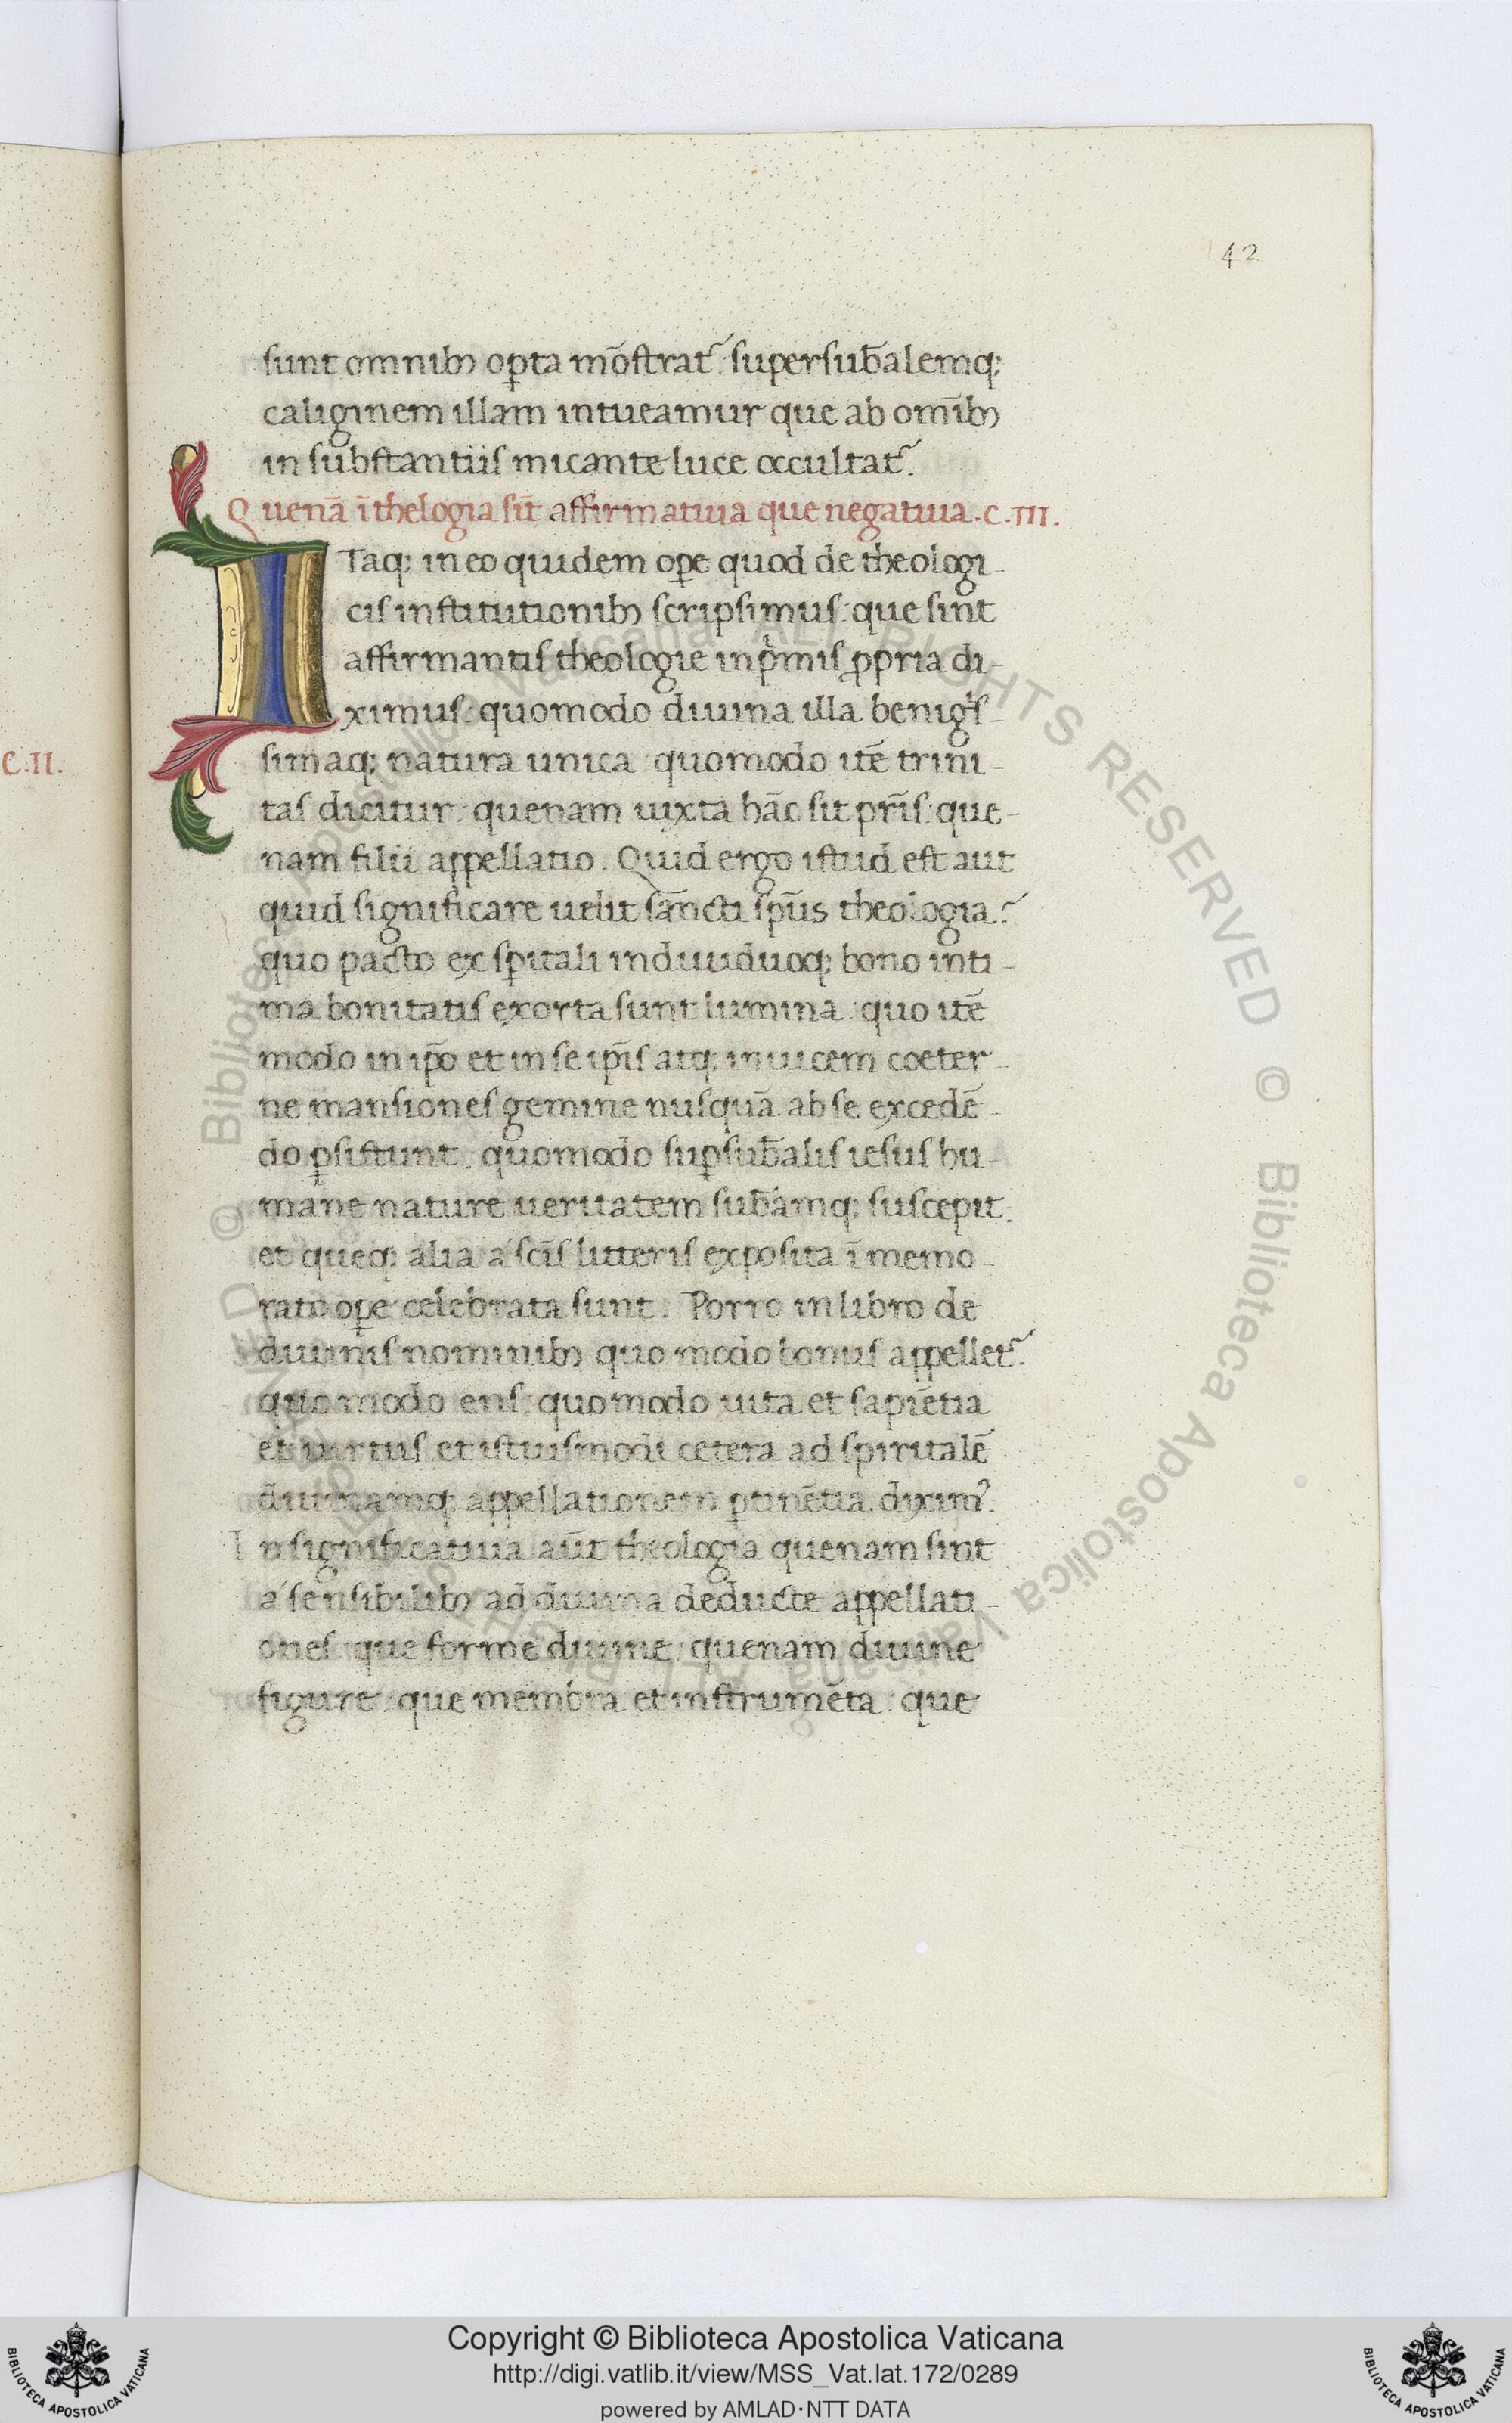 42
sunt omnibꝫ oꝑta mōstrat᷑. supersub̄alemqꝫ
caliginem illam intueamur que ab om̄ibꝫ
in substantiis micante luce occultat᷑.
Quenā ī thelogia sīt affirmatiua que negatiua. C. III.
ITaqꝫ in eo quidem oꝑe quod de theologi-
cis institutionibꝫ scripsimus: que sint
affirmantis theologie inpͥmis ꝓpria di-
ximus: quomodo diuina illa benigͥs-
simaqꝫ natura unica: quomodo itē trini-
C. II.
tas dicitur: quenam iuxta hāc sit pr̄is: que-
nam filii appellatio. Quid ergo istud est aut
quid significare uelit sāncti sp̄us theologia?
quo pacto ex sꝑitali indiuiduoqꝫ bono inti-
ma bonitatis exorta sunt lumina: quo itē
modo in ip̄o et in se ip̄is atqꝫ inuicem coeter-
ne mansiones gemine nusquā ab se excedē-
do ꝑsistunt: quomodo suꝑsub̄alis iesus hu-
mane nature ueritatem sub̄amqꝫ suscepit.
et queqꝫ alia a sc̄is litteris exposita ī memo-
rato oꝑe celebrata sunt. Porro in libro de
diuinis nominibꝫ quo modo bonus appellet᷑.
quo modo ens: quo modo uita et sapiētia
et uirtus et istiusmodi cetera ad spiritalē
diuinamqꝫ appellationem ꝑtinētia diximꝰ.
In significatiua aūt theologia quenam sint
a sensibilibꝫ ad diuina deducte appellati-
ones: que forme diuine: quenam diuine
figure: que membra et instrumēta: que
Copyright © Biblioteca Apostolica Vaticana
http://digi.vatlib.it/view/MSS_Vat.lat.172/0289
powered by AMLAD·NTT DATA